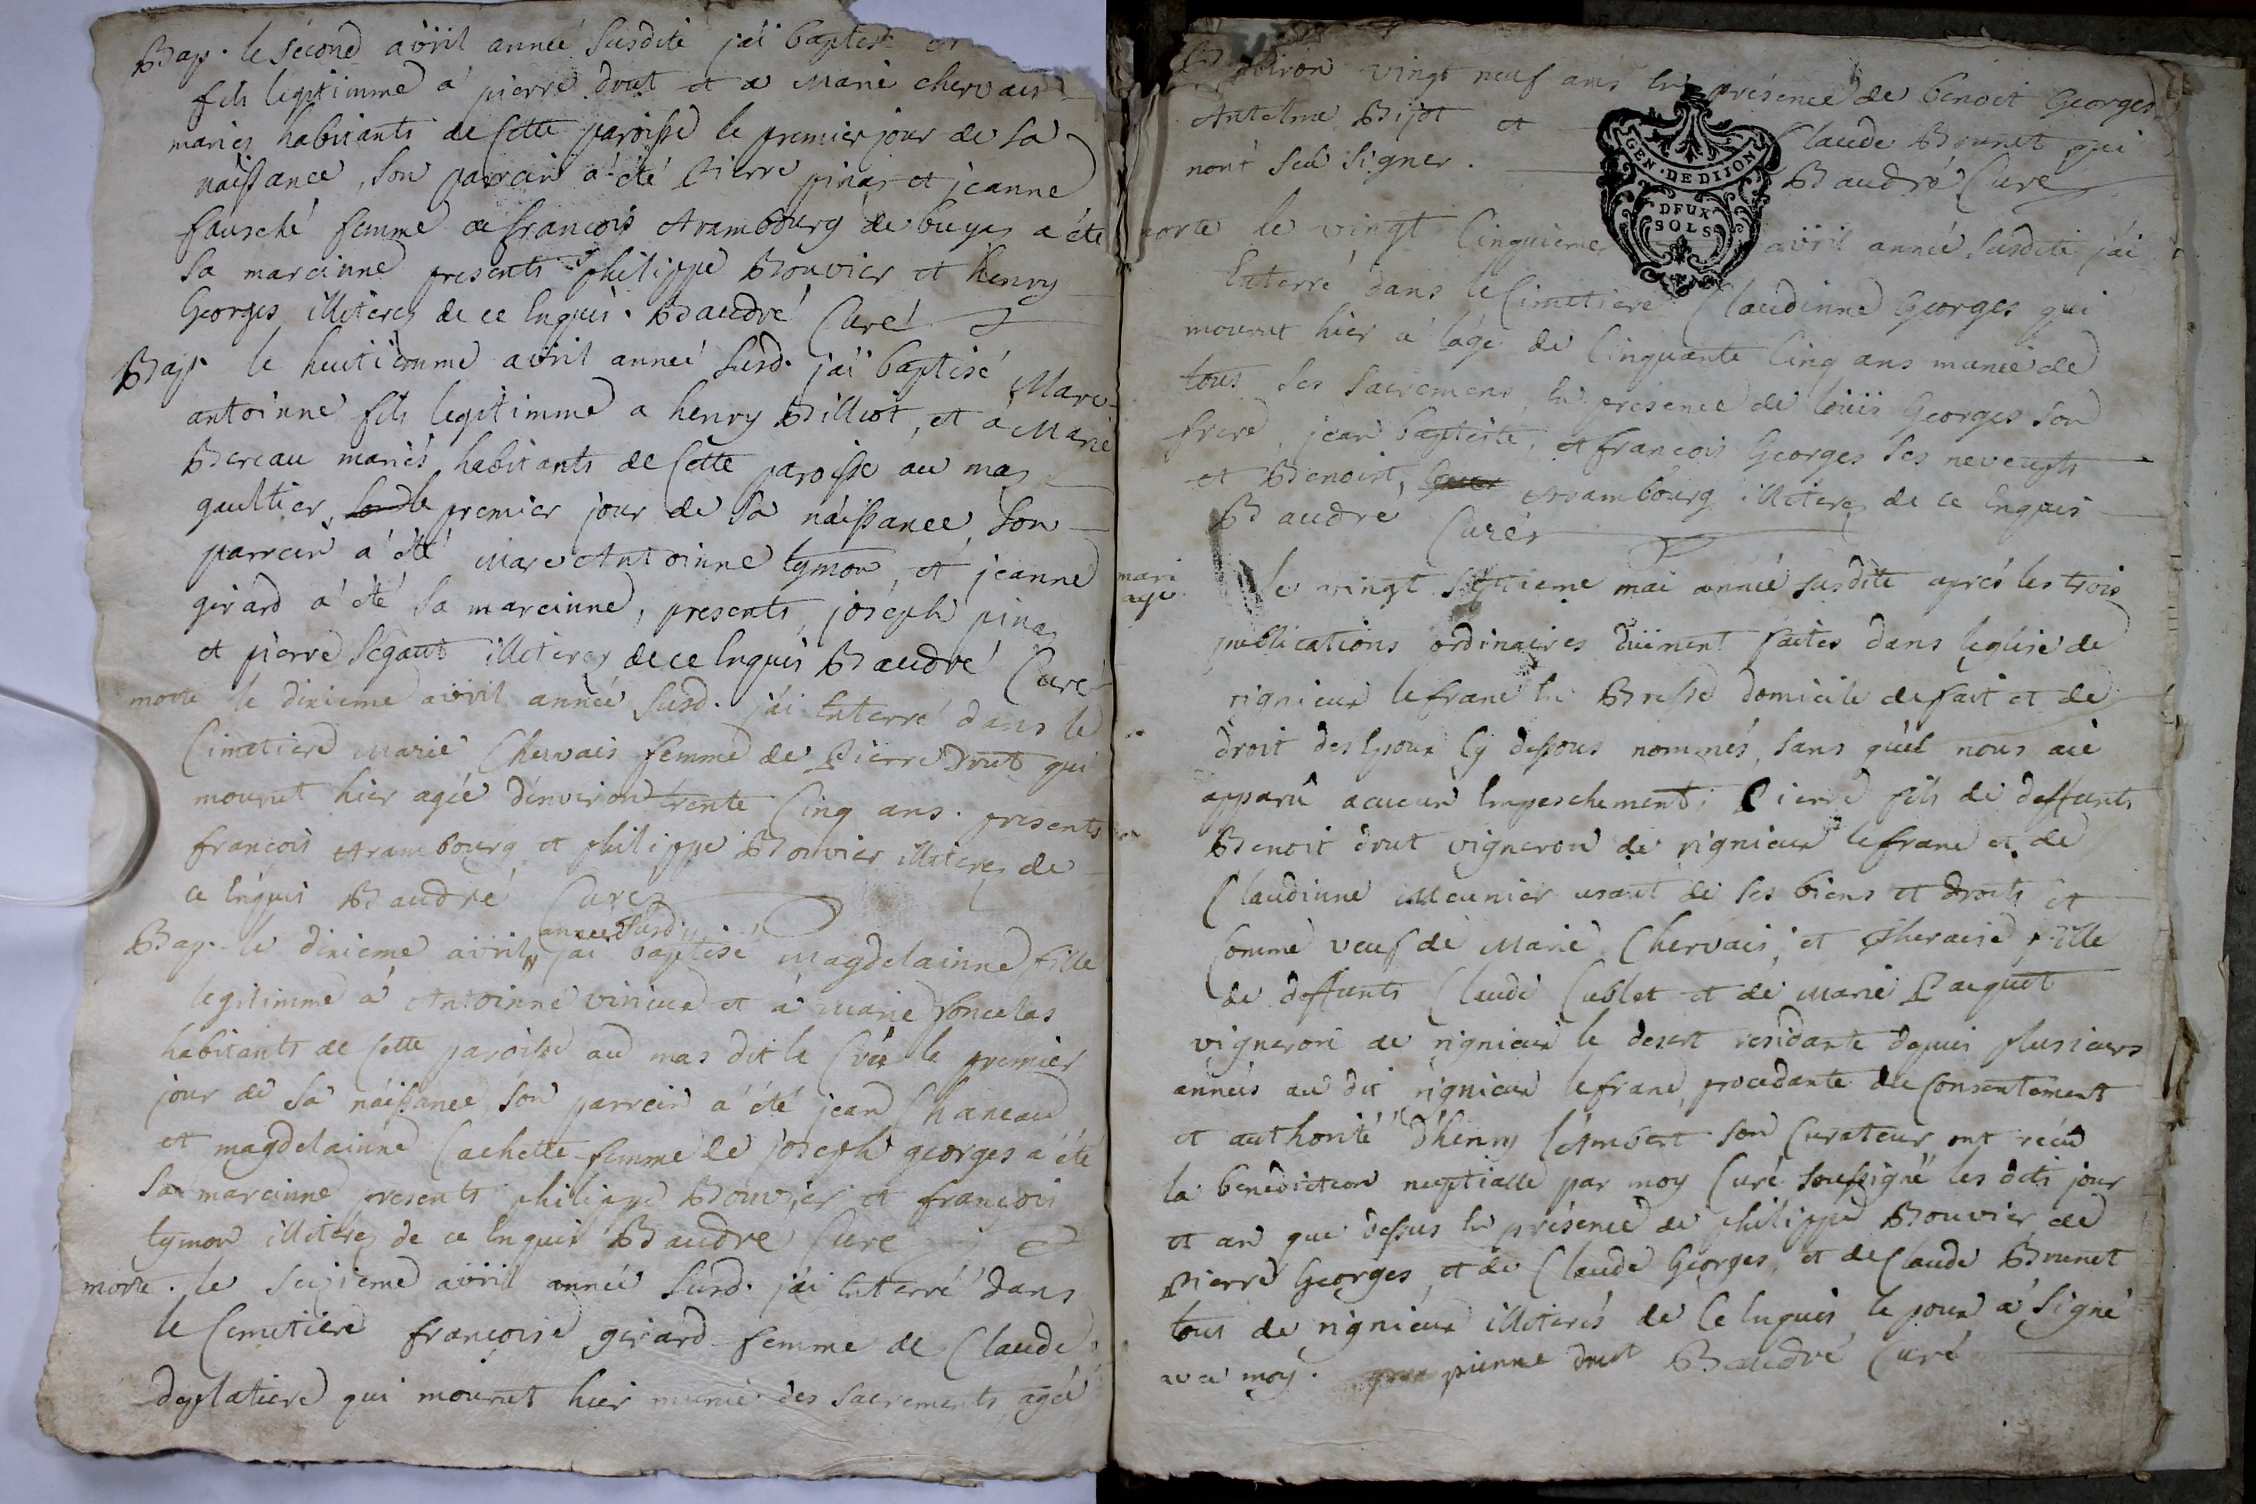 Bap. le second avril année susdite j'ai baptisé
fils legitimme a pierre drut et a Marie chervais
mariés habitants de Cette paroisse le premier jour de sa
naissance, son parrein a été Pierre pinas et jeanne
fausché femme de francois Arambourg de buyes a été
sa mareinne presents philippe Bouvier et henry
Georges illiterés de ce Enquis. Baudré Curé
Bap. le huitiemme avril année susd. j'ai baptisé Marc
antoinne fils legitimme a henry Billiot, et a Marie
Bereau mariés habitants de Cette paroisse au mas
gaultier, le premier jour de sa naissance, son
parrein a été Marc Antoinne tymon, et jeanne
girard a été sa mareinne, presents, joseph pinas
et pierre Segaut illiterés de ce Enquis Baudré Curé
morte le dixieme avril année susd. j'ai Enterré dans le
Cimetiere Marie Chervais femme de Pierre Drut qui
mourut hier agée d'environ trente Cinq ans. presents
francois Arambourg et philippe Bouvier illiterés de
ce Enquis Baudré Curé
année susd.
Bap. le dixieme avril j'ai baptisé Magdelainne fille
legitimme a Antoinne viricel et a Marie
habitants de Cette paroisse au mas dit le le premier
jour de sa naissance son parrein a été jean Chaneau
et magdelainne Cachette femme de joseph georges a été
sa mareinne presents philippe Bouvier et francois
tymon illiterés de ce Enquis Baudré Curé
morte. le seizieme avril année susd. j'ai Enterré dans
le Cemetiere francoise girard femme de Claude
deplatiere qui mourut hier munie des sacrements agée
d'environ vingt neuf ans En présence de benoit Georges
Antelme Bijot et Claude Brunet qui
n'ont sçu signer. Baudré Curé
morte le vingt Cinquieme avril année susdite j'ai
Enterré dans le Cimetiere Claudinne Georges qui
mourut hier a l'age de Cinquante Cinq ans munie de
tous ses sacremens, En présence de loüis Georges son
frere, jean baptiste, et francois Georges ses neveux
et Benoist, Arambourg illiterés de ce Enquis
Baudré Curé
mari
age. Le vingt septieme mai année susdite aprés les trois
publications ordinaires duëment faites dans l'eglise de
rignieux le franc En Bresse domicile de fait et de
droit des Epoux Cy dessous nommés, sans qu'il nous aie
apparu aucun Empeschement; Pierre fils de deffunts
Benoit drut vigneron de rignieux le franc et de
Claudinne Meunier usant de ses biens et droits et
Comme veuf de Marie Chervais; et Theraise fille
de deffunts Claude Cublet et de Marie Paequet
vigneron de rignieux le desert residante depuis plusieurs
années au dit rignieux le franc, procedante de Consentement
et authorité d'henry son Curateur ont reçu
la bénédiction nuptialle par moy Curé soussigné les dits jour
et an que dessus En présence de philippe Bouvier, de
Pierre Georges, et de Claude Georges, et de Claude Brunet
tous de rignieux illiterés de Ce Enquis le poux a signé
avec moy. pierre drut Baudré Curé
GEN. DE DIJON
DEUX
SOLS